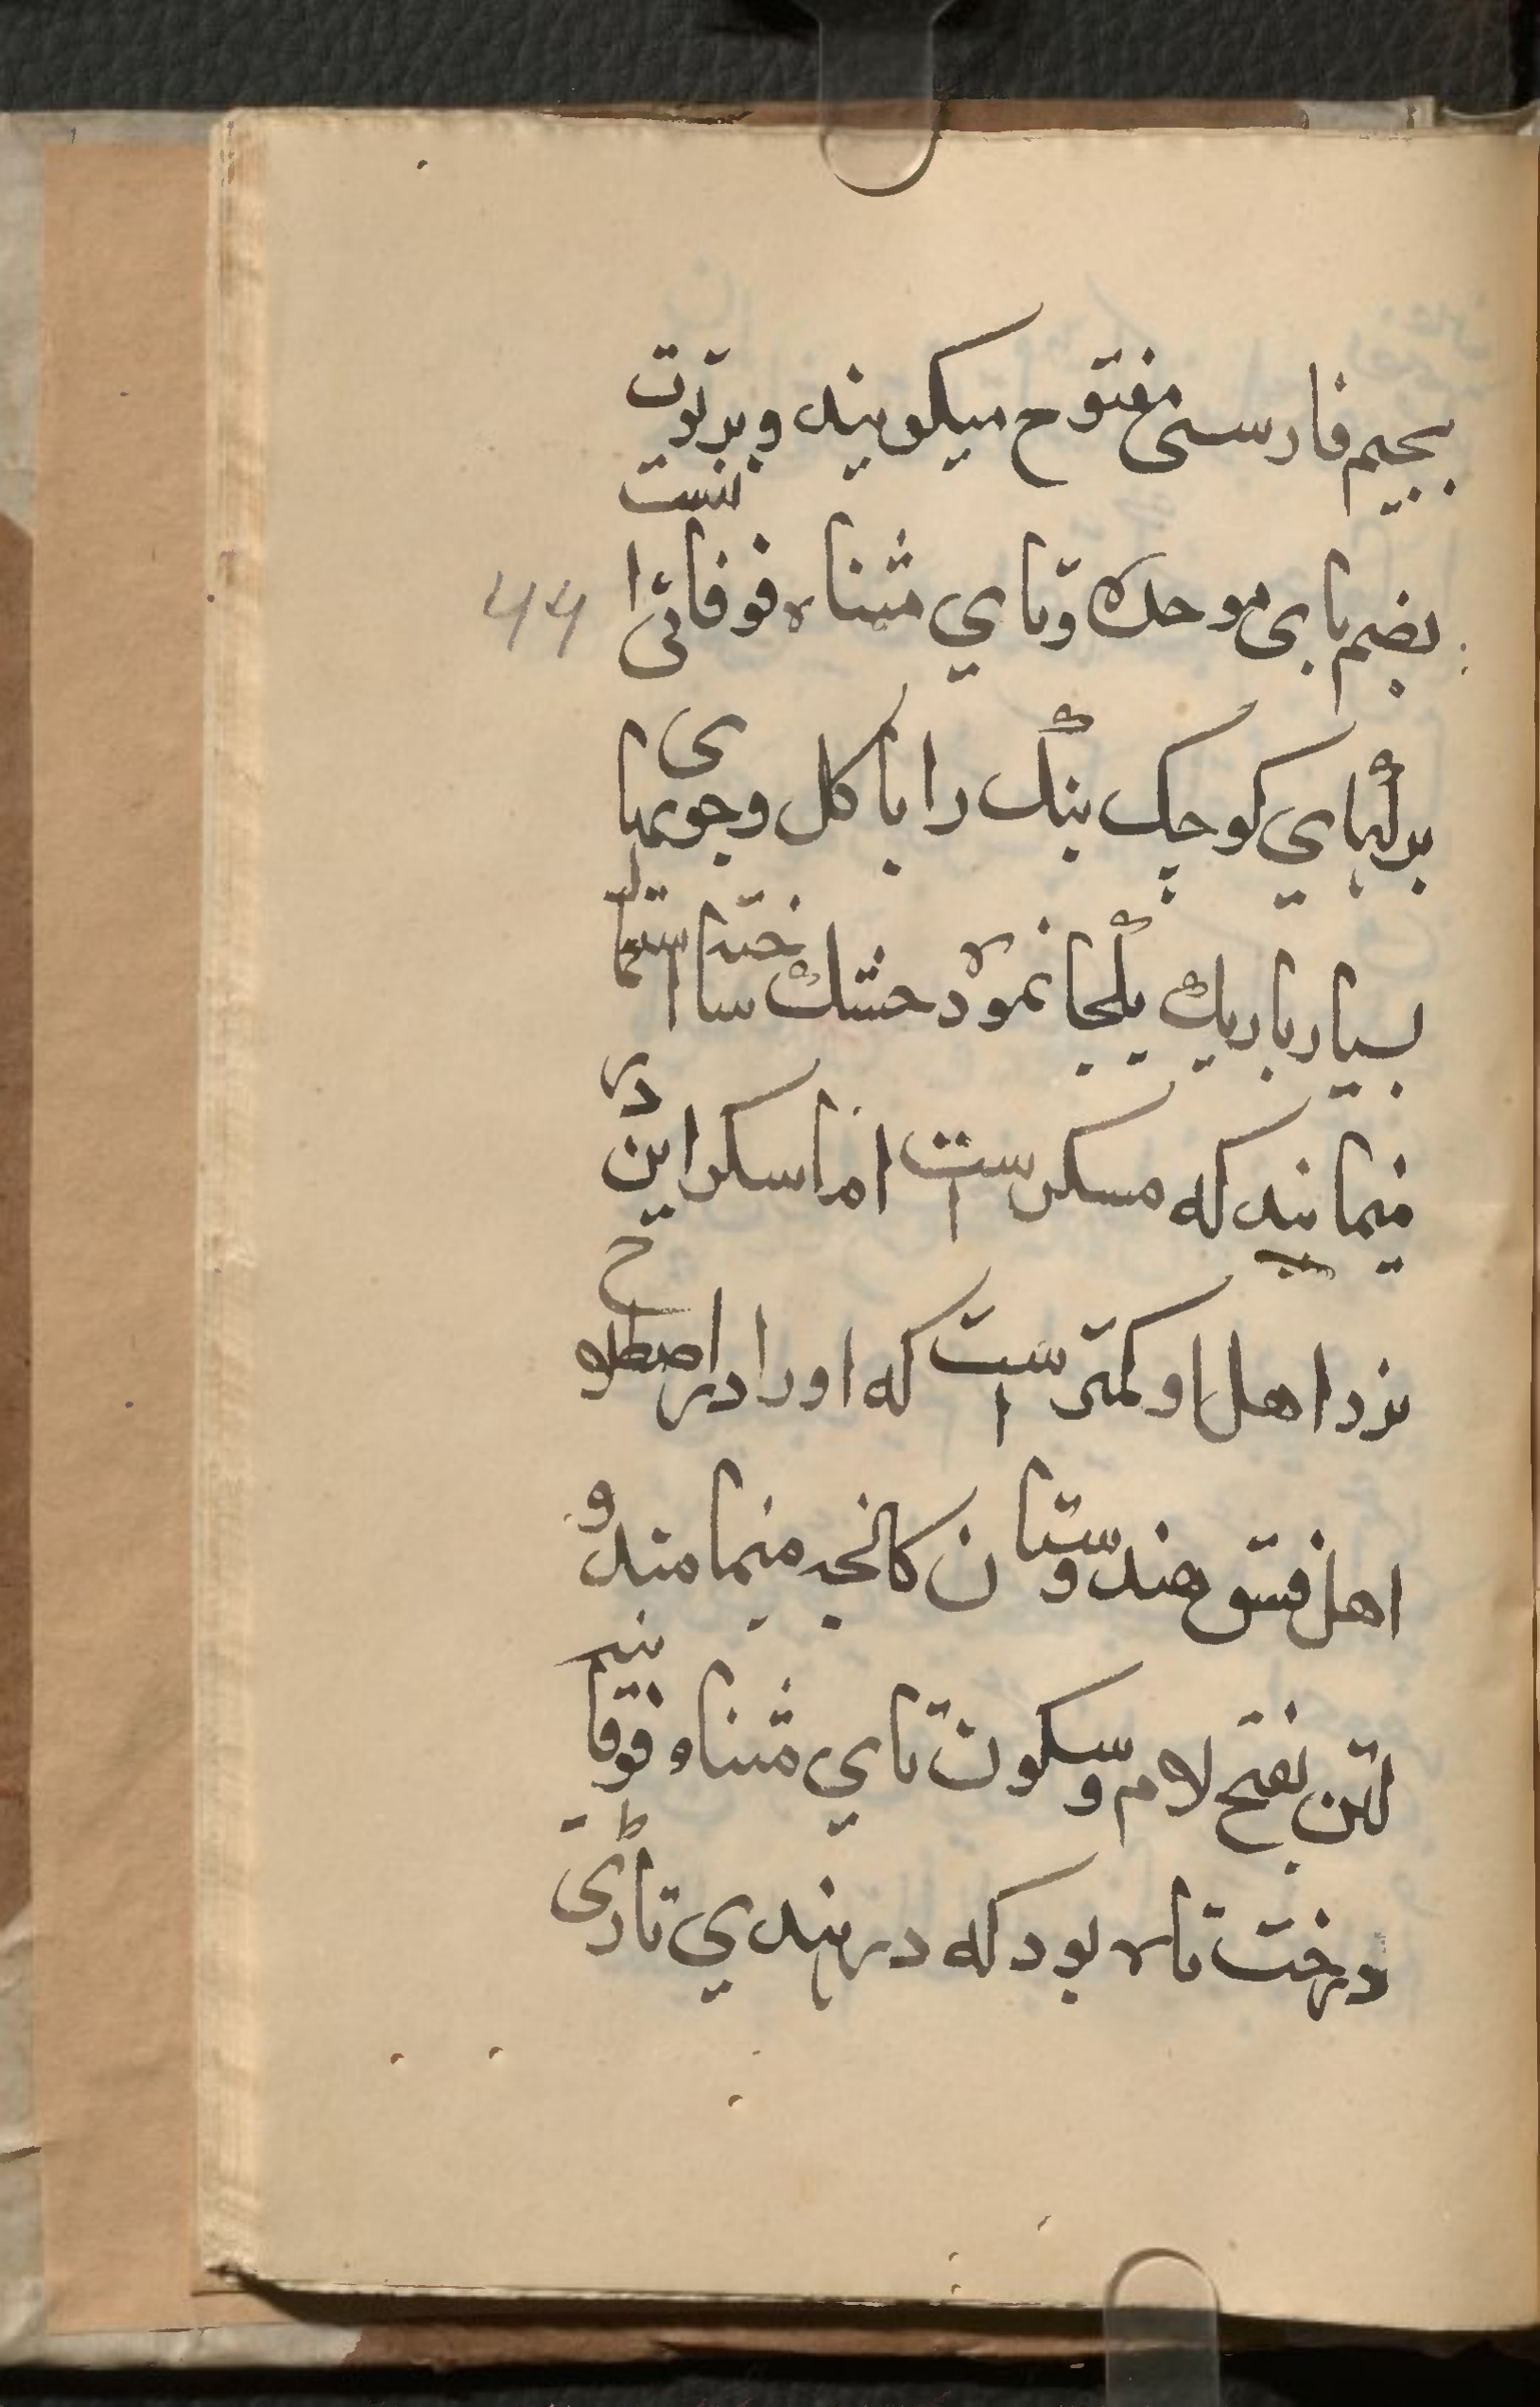 بجیم فارسی مفتوح میکویند و برتوت
بضم بای موحده و تای مثناه فوقانی انست
44
برکهای کوچک بنک را با کل و جویهای
بسیار باریک یکجا نموده خشک ساخته استما
مینمایند که مسکرست اما سکر این در
نزد اهل او کمترست که او را در اصطلاح
اهل فسق هندوستان کانجه مینامند و
لتن بفتح لام و سکون تای مثناه فوقانیه
درخت تاره بود که در هندی تاڑی